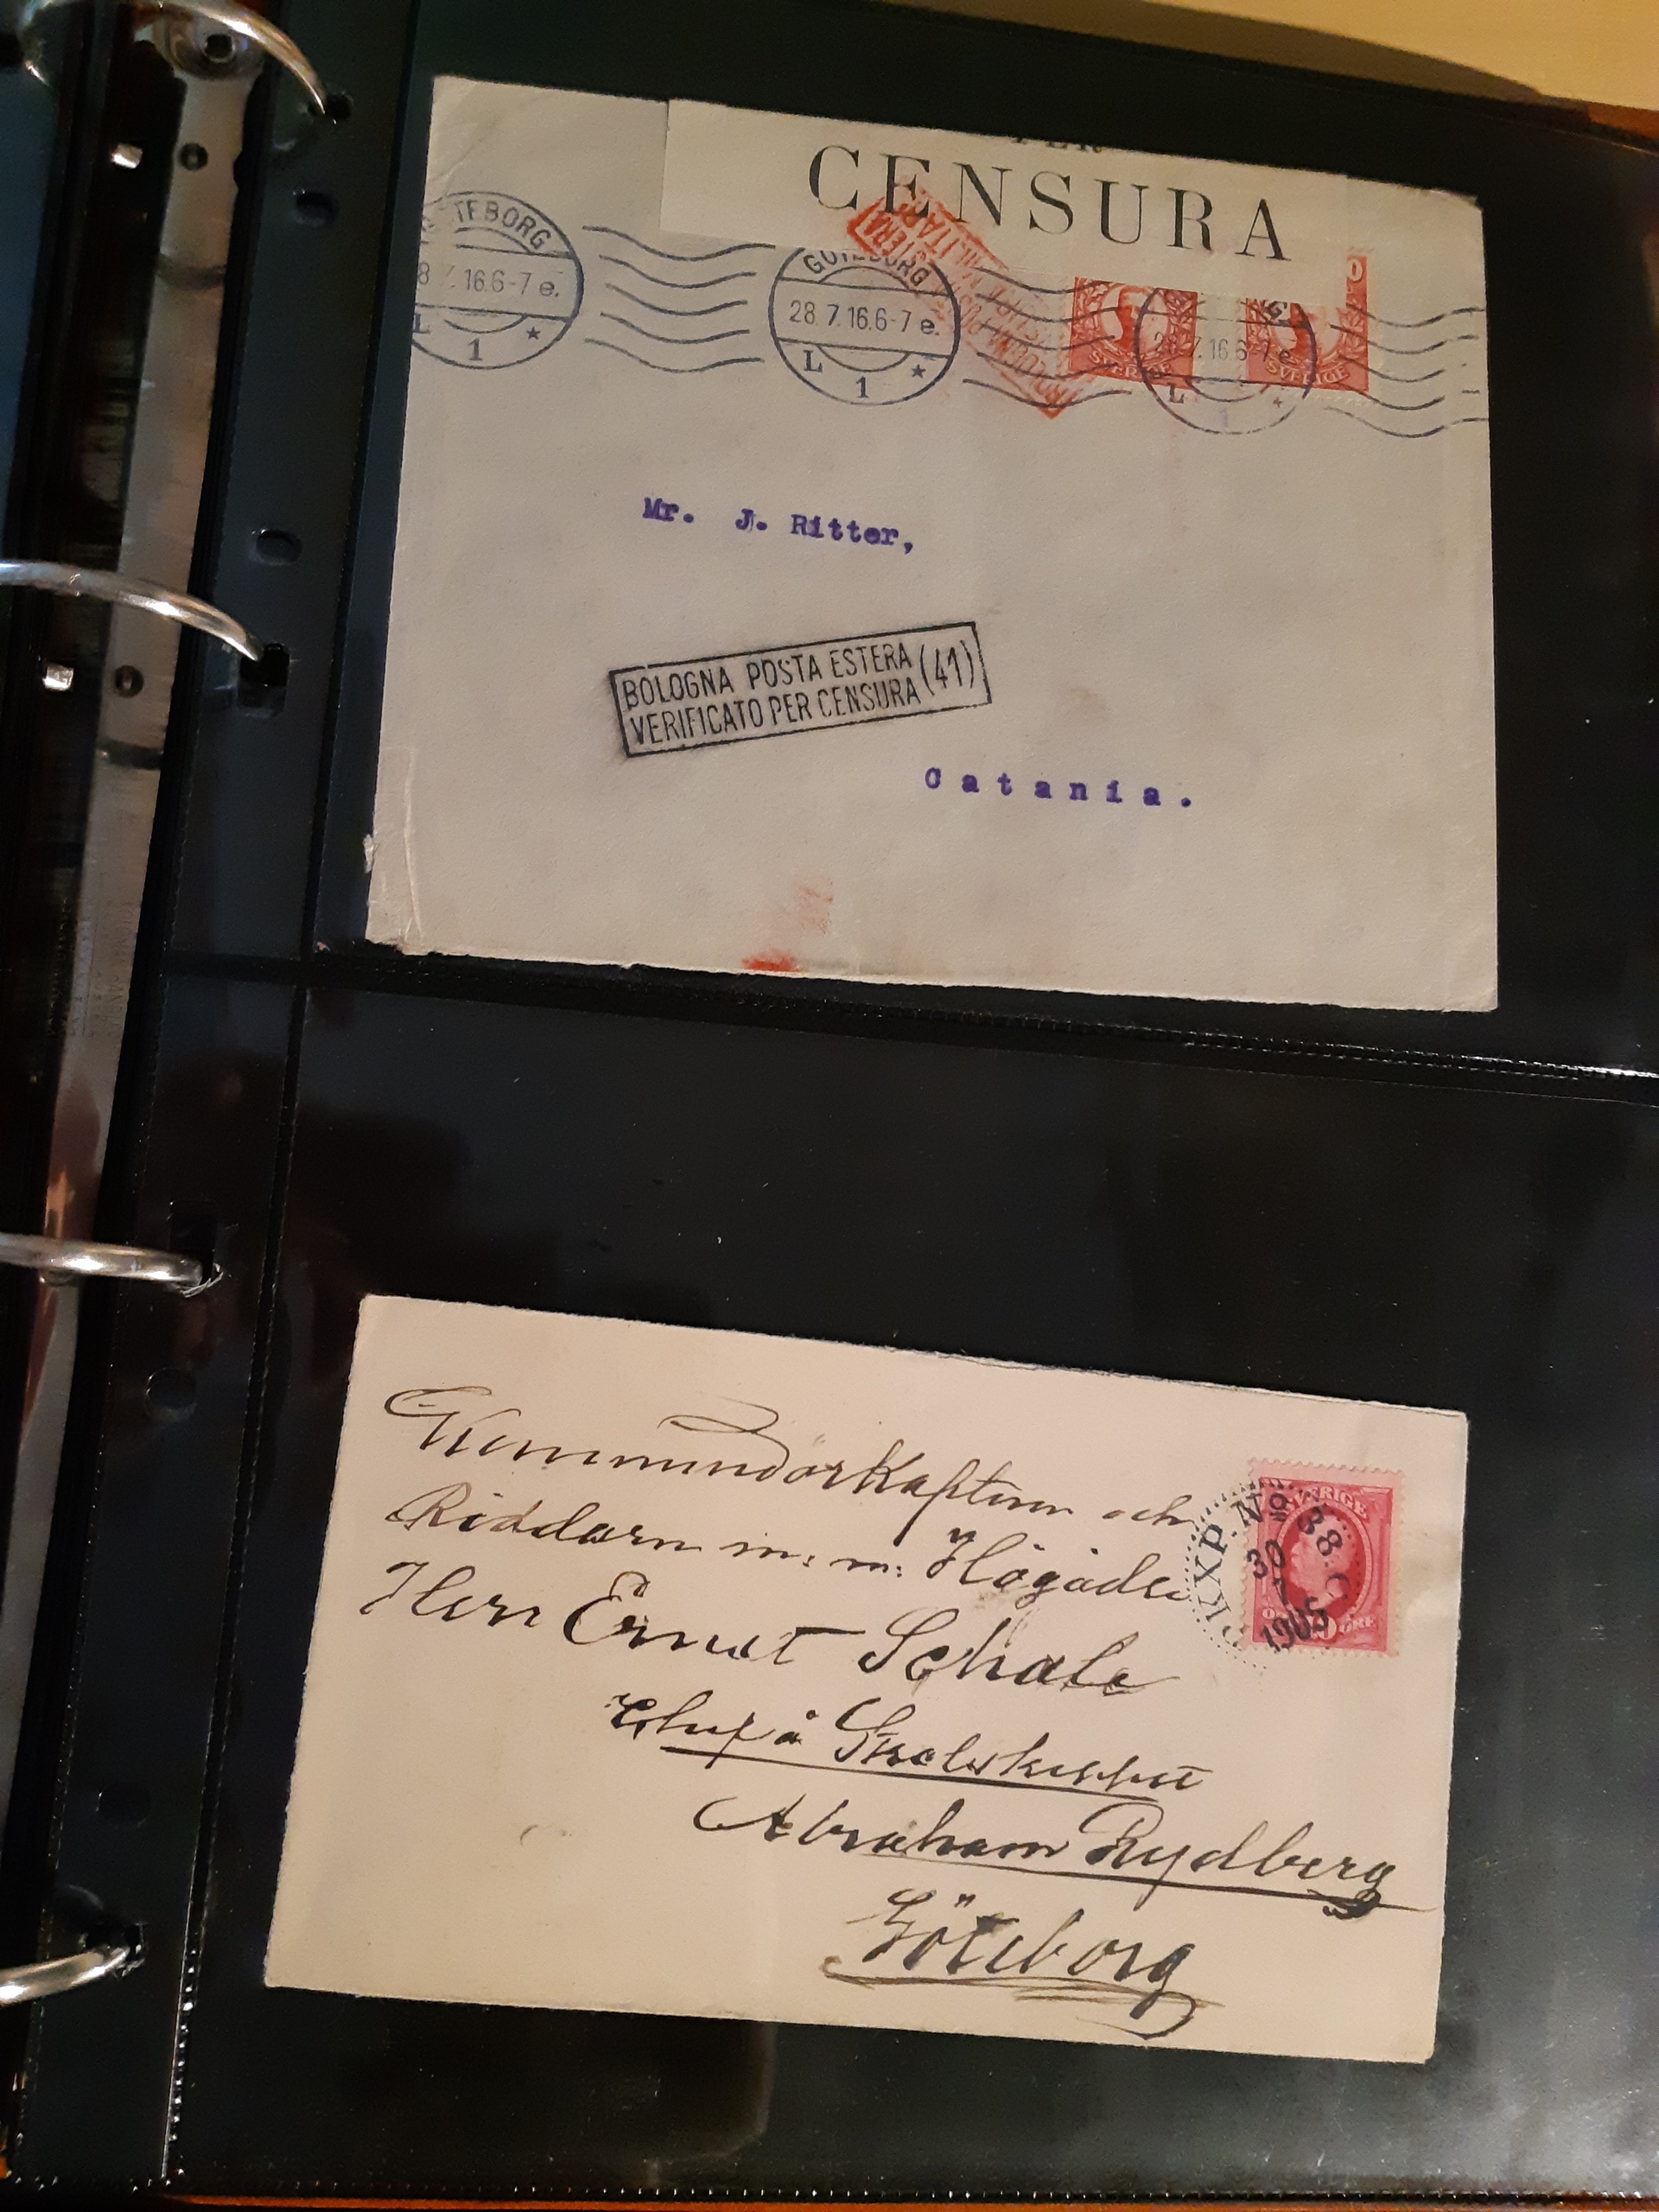 PER
CENSURA
GÖTEBORG
28.7.16.6-7 e.
L
1
GÖTEBORG
28.7.16.6-7 e.
L
1
28.7.16.6-7 e.
L
1
SVERIGE
SVERIGE
Mr. J. Ritter,
BOLOGNA POSTA ESTERA (41)
VERIFICATO PER CENSURA
Catania.
Kommendörkapten och
Riddarn m: m: Högädle
Herr Ernst Schale
å
Abraham Rydberg
Göteborg
PKXP. No 38. C
30
7
1905
SVERIGE
ÖRE